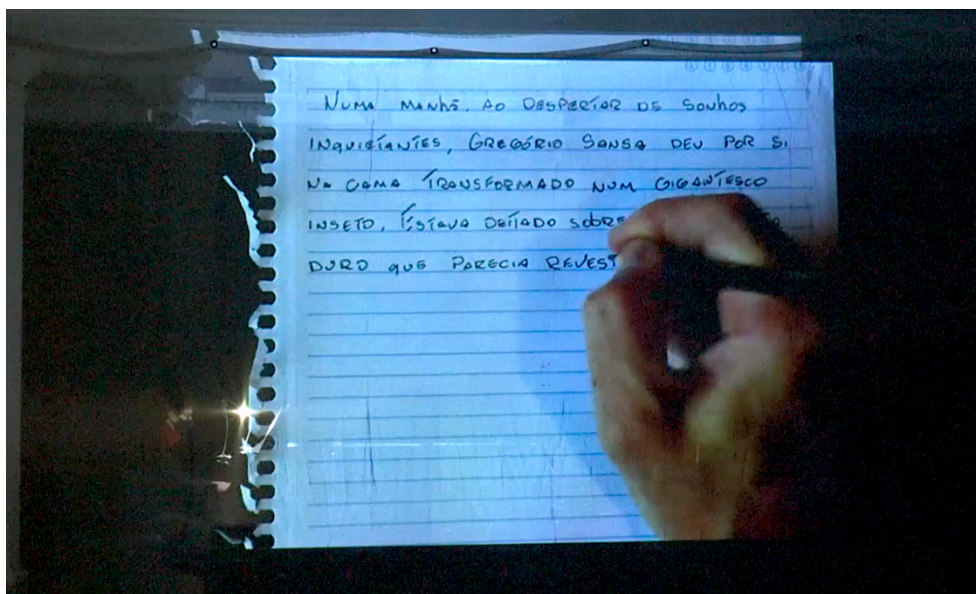 NUMA MANHÃ, AO DESPERTAR DE SONHOS
INQUIETANTES, GREGÓRIO SAMSA DEU POR SI
NA CAMA TRANSFORMADO NUM GIGANTESCO
INSETO. ESTAVA DEITADO SOBRE
DURO QUE PARECIA